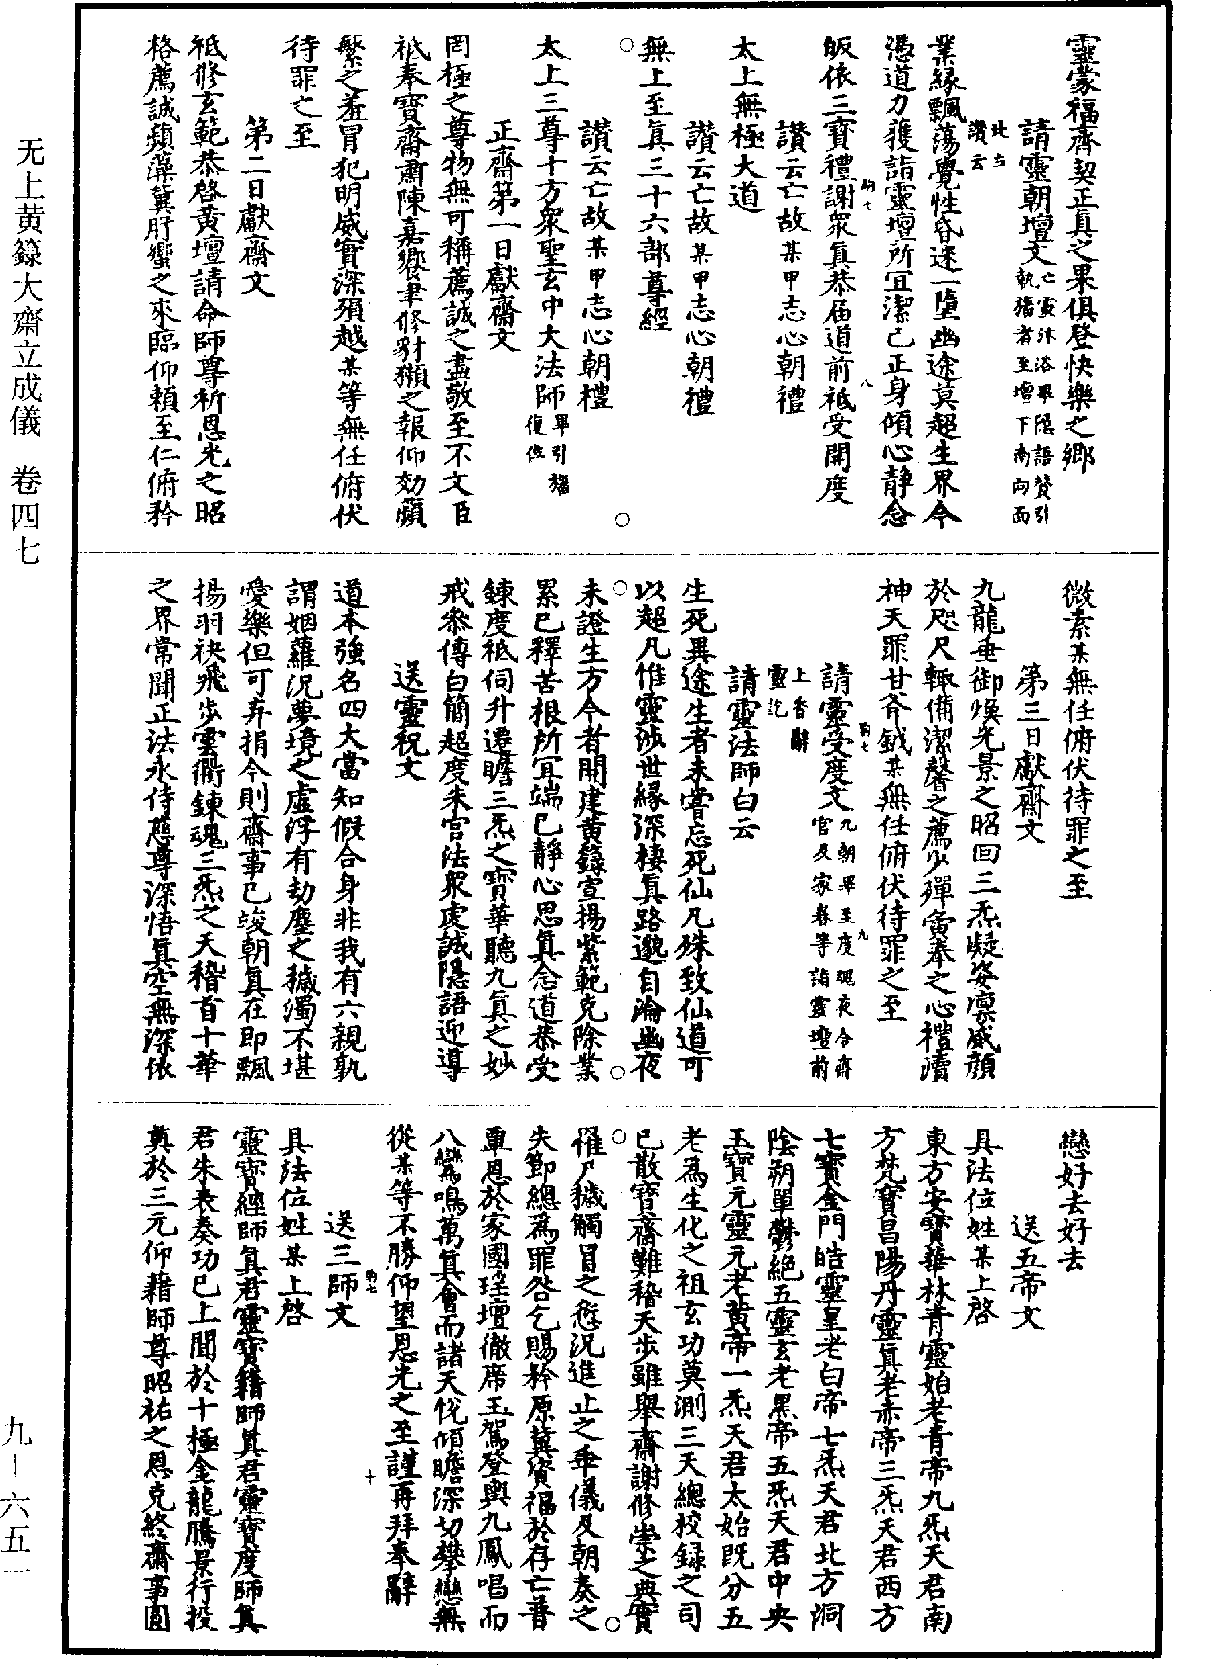 靈蒙福齊契正真之果俱登快樂之鄉
請靈朝壇文亡靈沐浴畢隱語贊引執旛者至壇下南向面北立讚云
業緣飄蕩覺性昏迷一墮幽途莫超生界今
憑道力獲詣靈壇所宜潔己正身傾心靜念
皈依三寶禮謝衆真恭届道前祗受開度
讃云亡故某甲志心朝禮
太上無極大道
讃云亡故某甲志心朝禮
無上至真三十六部尊經
讃云亡故某甲志心朝禮
太上三尊十方衆聖玄中大法師畢引旛復位
正齋第一日獻齋文
罔極之尊物無可稱薦誠之盡敬至不文臣
祇奉寶齋肅陳嘉饗聿修豺獺之報仰効蘋
蘩之羞冒犯明威實深殞越某等無任俯伏
待罪之至
第二日獻齋文
祗修玄範恭啓黃壇請命師尊祈恩光之昭
格薦誠蘋藻冀肸蠁之來臨仰賴至仁俯矜
微素某無任俯伏待罪之至
第三日獻齋文
九龍垂御煥光景之昭回三炁凝姿凛威顔
於咫尺輙備潔馨之薦少殫寅奉之心禮瀆
神天罪甘斧鉞某無任俯伏待罪之至
請靈受度文九朝畢至度魂夜令齋官及家眷等詣靈壇前上香辭靈訖
請靈法師白云
生死異途生者未嘗忘死仙凡殊致仙道可
以超凡惟靈涉世緣深棲真路邈自淪幽夜
未證生方今者開建黃籙宣揚紫範克除業
累已釋苦根所宜端已靜心思真念道恭受
鍊度祗伺升遷瞻三炁之寶華聽九真之妙
戒叅傳白簡超度朱宫法衆虔誠隱語迎導
送靈祝文
道本強名四大當知假合身非我有六親孰
謂姻蘿況夢境之虛浮有劫塵之穢濁不堪
愛樂但可弃捐今則齋事已竣朝真在即飄
揚羽袂飛步雲衢鍊魂三炁之天稽首十華
之界常聞正法永侍慈尊深悟真空無深依
戀好去好去
送五帝文
具法位姓某上啓
東方安寶華林青靈始老青帝九炁天君南
方梵寶昌陽丹靈真老赤帝三炁天君西方
七寶金門皓靈皇老白帝七炁天君北方洞
陰朔單鬱絶五靈玄老黑帝五炁天君中央
玉寶元靈元老黃帝一炁天君太始既分五
老為生化之祖玄功莫測三天總校録之司
已散寶齋難稽天步雖舉齋謝修崇之典實
罹尸穢觸冒之愆況進止之乖儀及朝奏之
失節總為罪咎乞賜矜原冀資福於存亡普
單恩於家國瑤壇徹席玉駕登輿九鳳唱而
八鸞鳴萬真會而諸天悅傾瞻深切攀戀無
從某等不勝仰望恩光之至謹再拜奉辭
送三師文
具法位姓某上啓
靈寶經師真君靈寶籍師真君靈寶度師真
君朱表奏功已上聞於十極金龍騰景行投
奠於三元仰藉師尊昭祐之恩克終齋事圓
无上黄籙大齋立成儀 卷四七
九－六五一